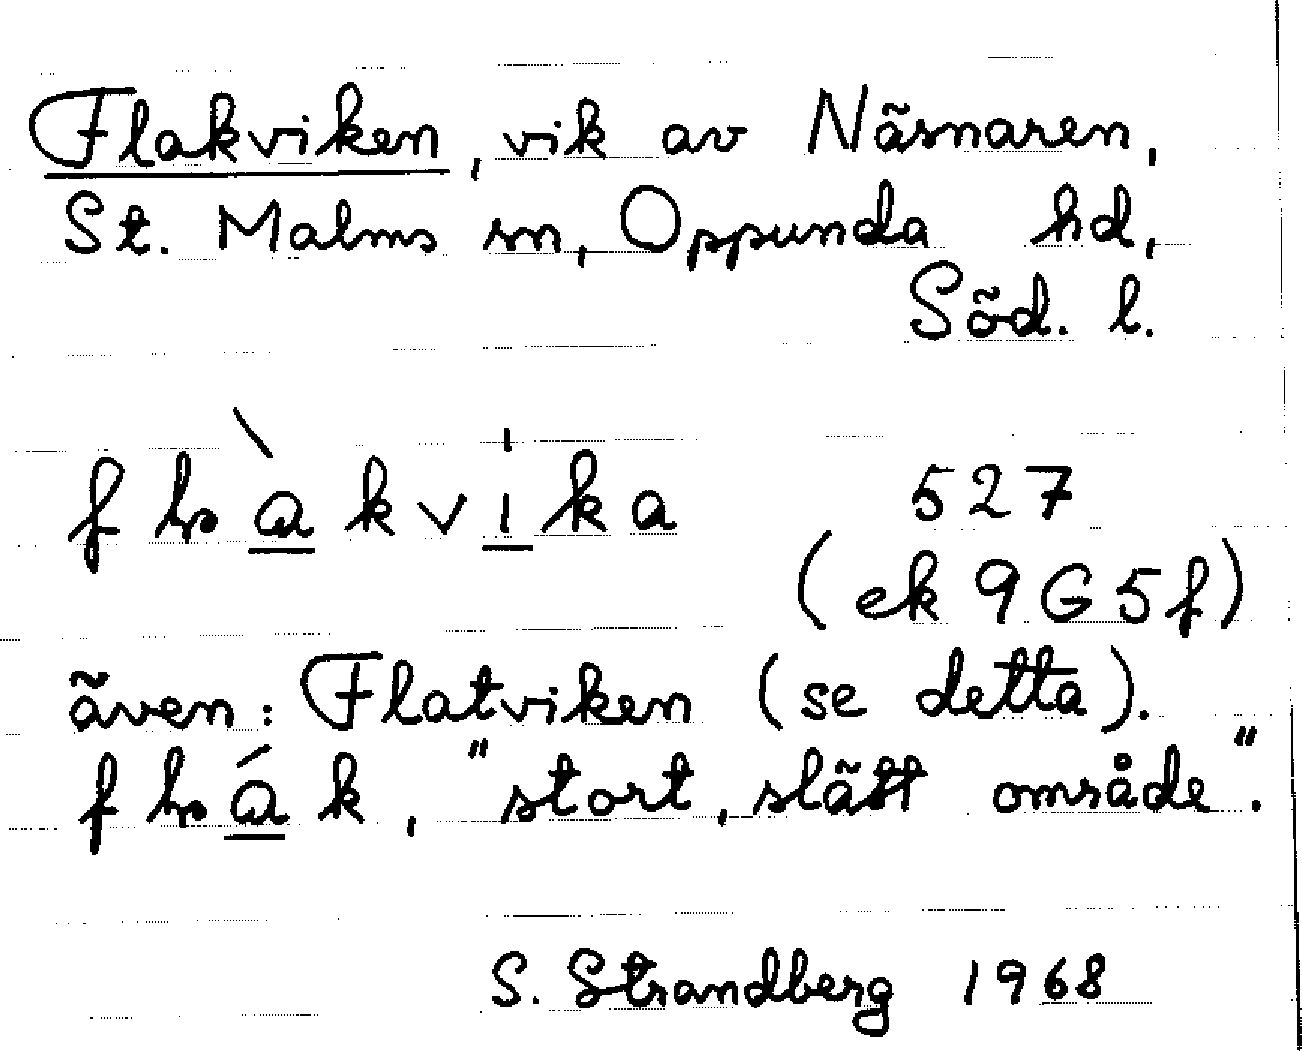 Flakviken, vik av Näsnaren,
St. Malms sn, Oppunda hd,
Söd. l.
flàkvika 527
(ek 9G5f)
även: Flatviken (se detta).
flák, "stort, slätt område".
S. Strandberg 1968